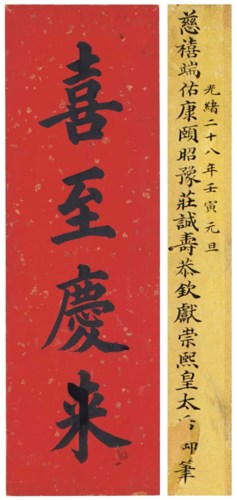 光緒二十八年壬寅元旦
慈禧端佑康頤昭豫莊誠壽恭欽獻崇熙皇太筆
喜至慶来